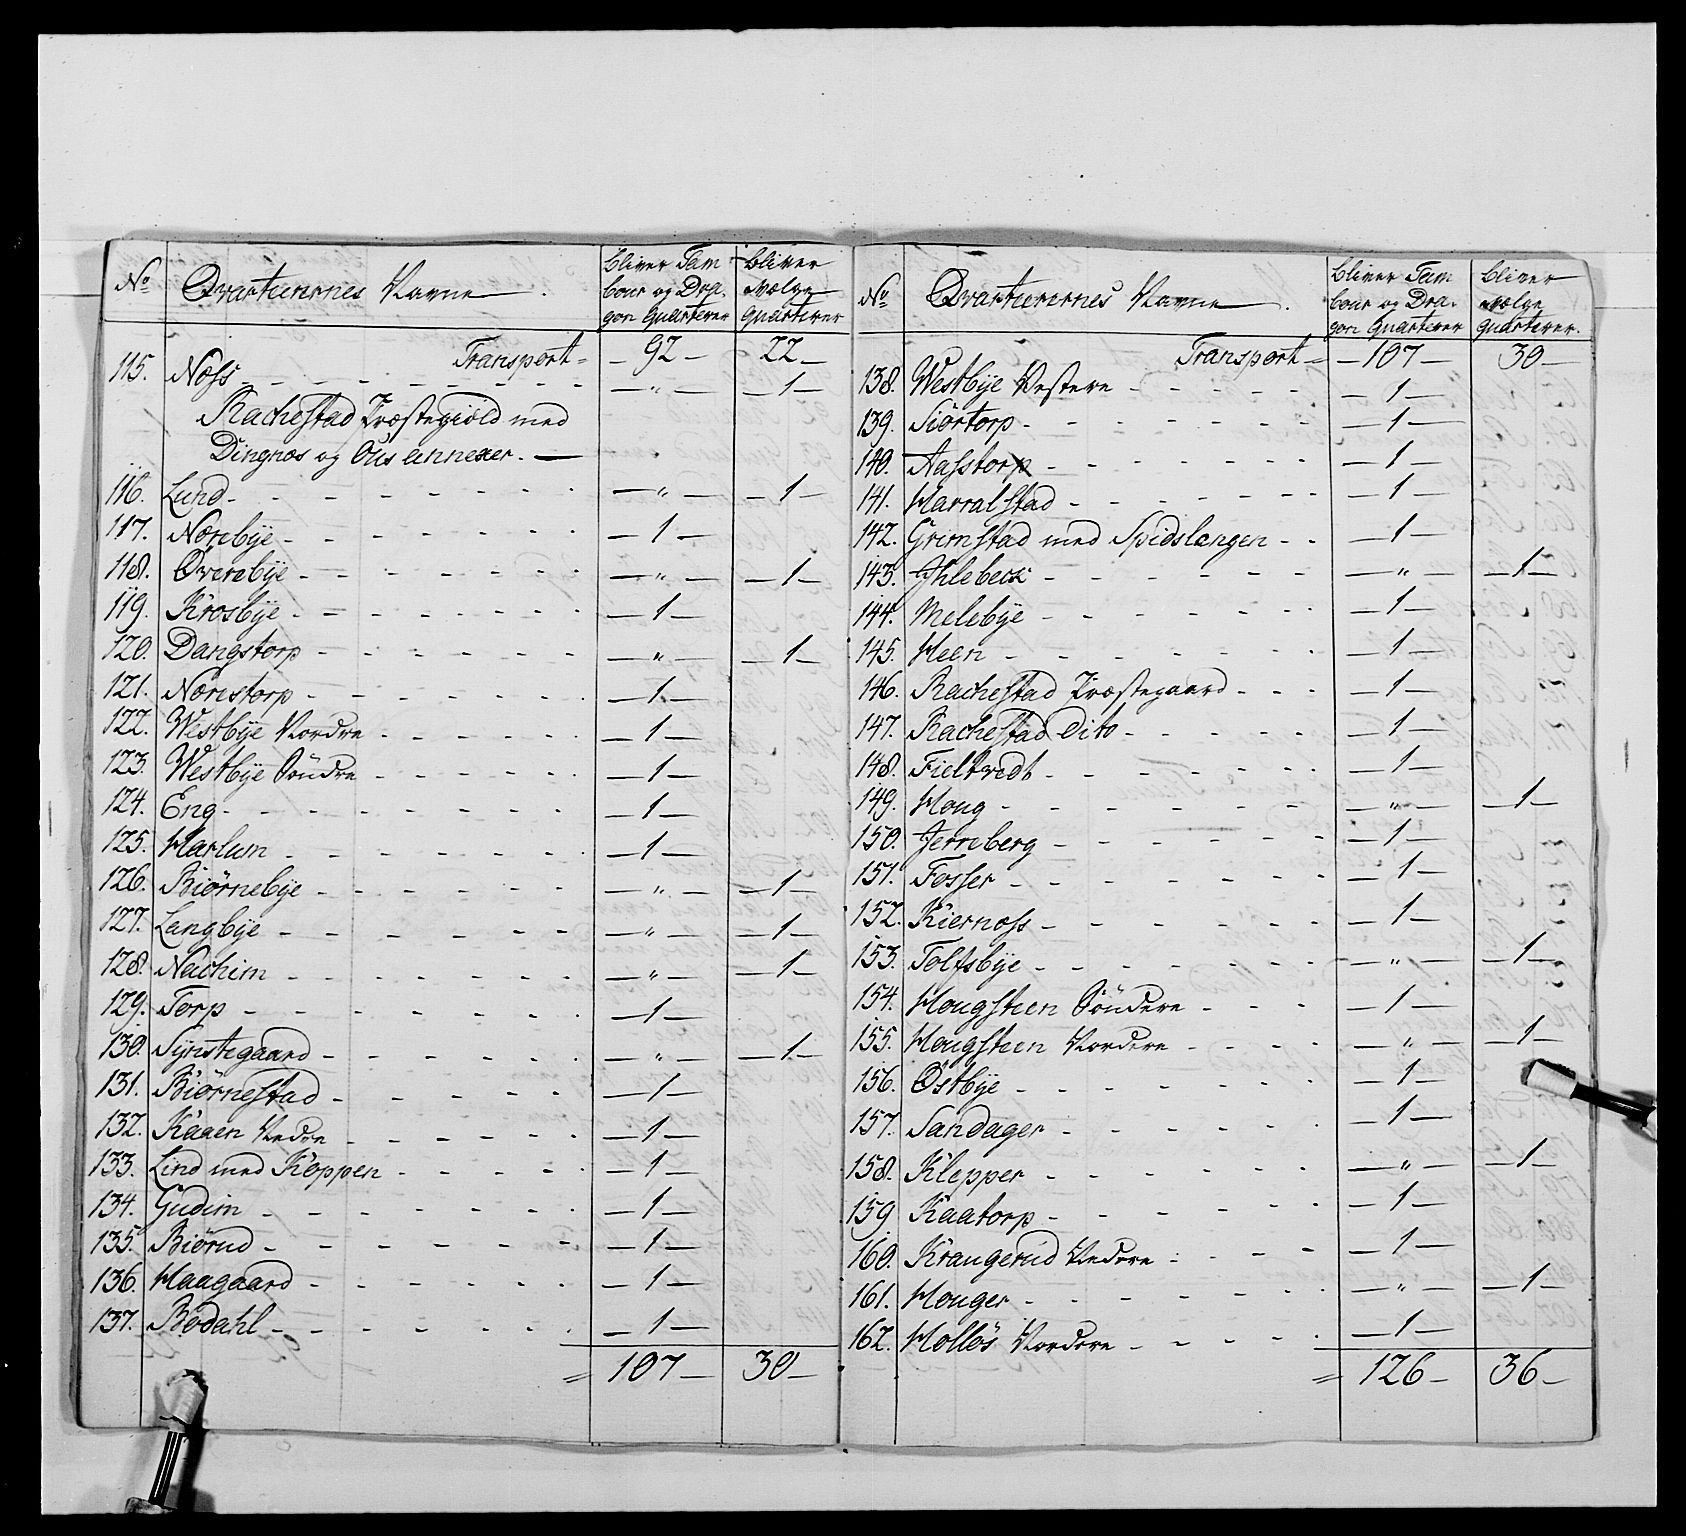 No Qvarteerernes Navne bliver Tam bliver
bour og Dra= Vælge
gon Quarterer Quarterer
Transport = 92 22
115. Næss " 1
Rachestad Præstegiæld med
Dingnæs og Ous annexer.
116. Lund " 1
117. Nærebÿe 1
118. Øverebÿe " 1
119. Krosbÿe 1
120. Dangstorp " 1
121. Nærestorp 1
122. Westbÿe Nordre 1
123. Westbÿe Söndre 1
124. Eng 1
125. Harlum 1
126. Biørnebÿe " 1
127. Langbÿe " 1
128. Nachim " 1
129. Torp 1
130. Sÿnstegaard " 1
131. Biørnestad 1
132. Kaaen Nedre 1
133. Lind med Koppen 1
134. Gudim 1
135. Biørud 1
136. Haagaard 1
137. Bødahl 1
= 107 30
No Qvarteerernes Navne bliver Tam bliver
bour og Dra= Vælge
gon Quarterer Quarterer.
Transport = 107 30
138. Westbÿe Vestere 1
139. Siörtorp 1
140. Aasstorp 1
141. Harralstad 1
142. Grimstad med Spidslangen 1
143. Ihlebeck " 1
144. Melebÿe 1
145. Heen 1
146. Rachestad Præstegaard 1
147. Rachestad Dito 1
148. Fieltvedt 1
149. Houg " 1
150. Jerreberg 1
151. Fosser 1
152. Kiernæss 1
153. Tolfsbÿe " 1
154. Hougsteen Söndere 1
155. Hougsteen Nordere " 1
156. Østbÿe 1
157. Sandager 1
158. Klepper " 1
159 Kaatorp 1
160. Krangerud Nedore 1
161. Houger " 1
162. Hollös Nordore 1
= 126 36